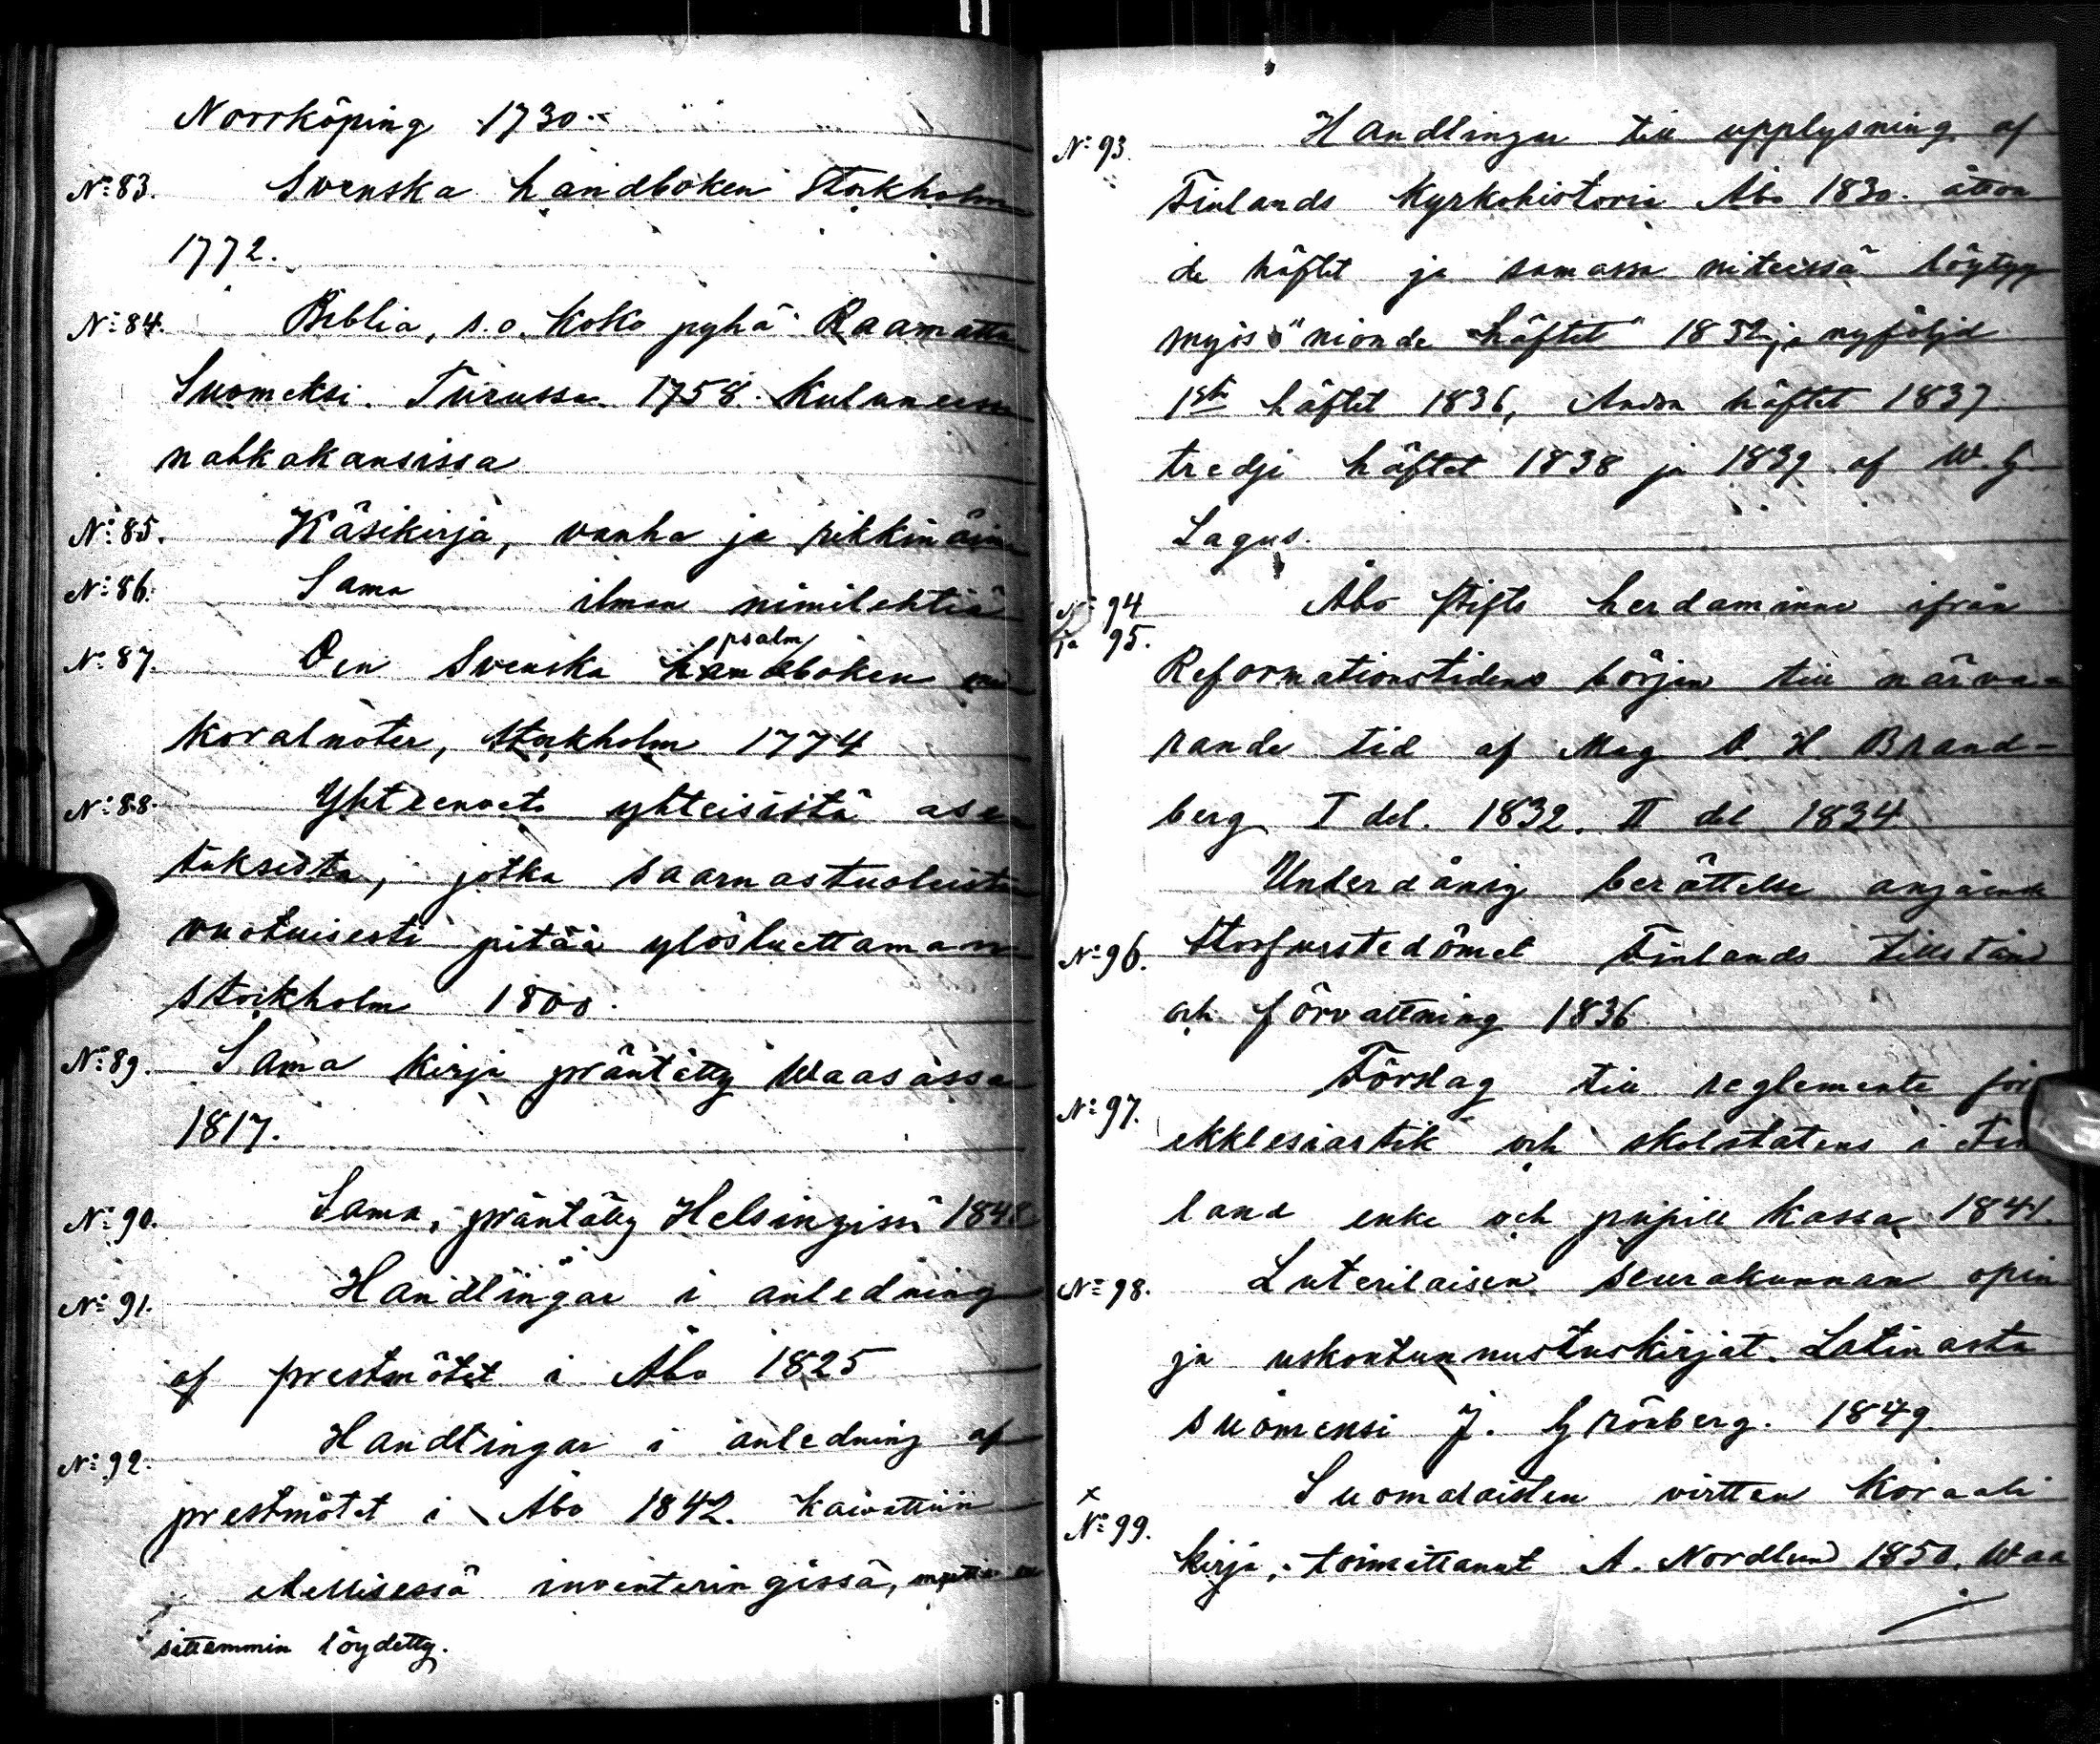 Norrköping 1730.
No 83. Svenska handboken Stockholm
1772.
No 84. Biblia, s.o. Koko pyhä Raamattu
Suomeksi. Turussa 1758. Kuluneissa
nahkakansissa
No 85. Käsikirja, vanha ja rikkinäinen
No 86. Sama ilman nimilehtiä
psalm
No 87. Den Svenska handboken
koralnoter, Stockholm 1774
No 88. Yhteenveto yhteisistä ase
tuksista, jotka saarnastuoleista
vuotuisesti pitää ylösluettaman
Stockholm 1800.
No 89. Sama kirja präntätty Waasassa
1817.
No 90. Sama, präntätty Helsingissä
No 91. Handlingar i anledning
af prestmötet i Åbo 1825
No 92. Handlingar i anledning af
prestmötet i Åbo 1842. Kaivattiin
edellisessä inventeringissä,
sittemmin löydetty.
No 93. Handlingar till upplysning af
Finlands Kyrkohistoria Åbo 1830. åtton
de häftet ja samassa niteessä löytyy
myös "nionde häftet" 1832 ja nyföljd
1sta häftet 1836, Andra häftet 1837
tredje häftet 1838 ja 1839 af W. G.
Lagus.
No 94 Åbo stifts herdaminne ifrån
ja 95.
Reformationstidens början till närva-
rande tid af Mag O. H. Brand-
berg I del. 1832. II del 1834.
Underdånig berättelse angående
No 96. Storfurstedömet Finlands tillstånd
och förvattning 1836
Förslag till reglemente för
No 97.
ekklesiastik och skolstatens i Fin
land enke och pupill kassa 1841.
No 98. Luterilaisen seurakunnan opin
ja uskontunnustuskirjat. Latinasta
suomensi J. Grönberg. 1849.
x Suomalaisten virtten Koraali
No 99.
kirja, toimittanut A. Nordlund 1850. Waa